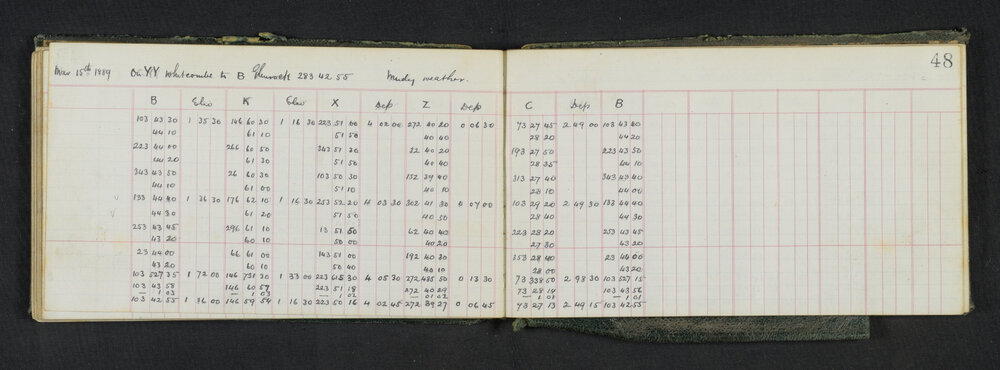 48
Mar 15th 1889 On YY Whitcombe to B 283 42 55 Windy weather.
B Elev K Elev X Dep Z Dep C Dep B
103 43 30 1 35 30 146 60 30 1 16 30 223 51 00 4 02 00 272 40 20 0 06 30 73 27 45 2 49 00 103 43 40
44 10 61 10 51 50 40 40 28 20 44 20
223 44 00 266 60 50 343 51 30 32 40 20 193 27 50 223 43 50
44 20 61 30 51 50 40 40 28 35 44 10
343 43 50 26 60 30 103 50 30 152 39 40 313 27 40 343 43 40
44 10 61 00 51 10 40 10 28 10 44 00
133 44 40 1 36 30 176 62 10 1 16 30 253 52 20 4 03 30 302 41 30 0 07 00 103 29 20 2 49 30 133 44 40
44 30 61 20 51 50 40 50 28 40 44 30
253 43 45 296 61 10 13 51 00 62 40 40 223 28 20 253 43 45
43 20 60 10 50 00 40 20 27 30 43 20
23 44 00 56 61 00 143 51 00 192 40 30 353 28 40 23 44 00
43 20 60 10 50 40 40 10 28 00 43 20
103 527 35 1 72 00 146 731 30 1 33 00 223 615 30 4 05 30 272 485 50 0 13 30 73 338 50 2 98 30 103 527 15
103 43 58 146 60 57 223 51 18 272 40 29 73 28 14 103 43 56
— 1 03 — 1 03 — 1 02 — 01 02 — 1 01 — 1 01
103 42 55 1 36 00 146 59 54 1 16 30 223 50 16 4 02 45 272 39 27 0 06 45 73 27 13 2 49 15 103 42 55